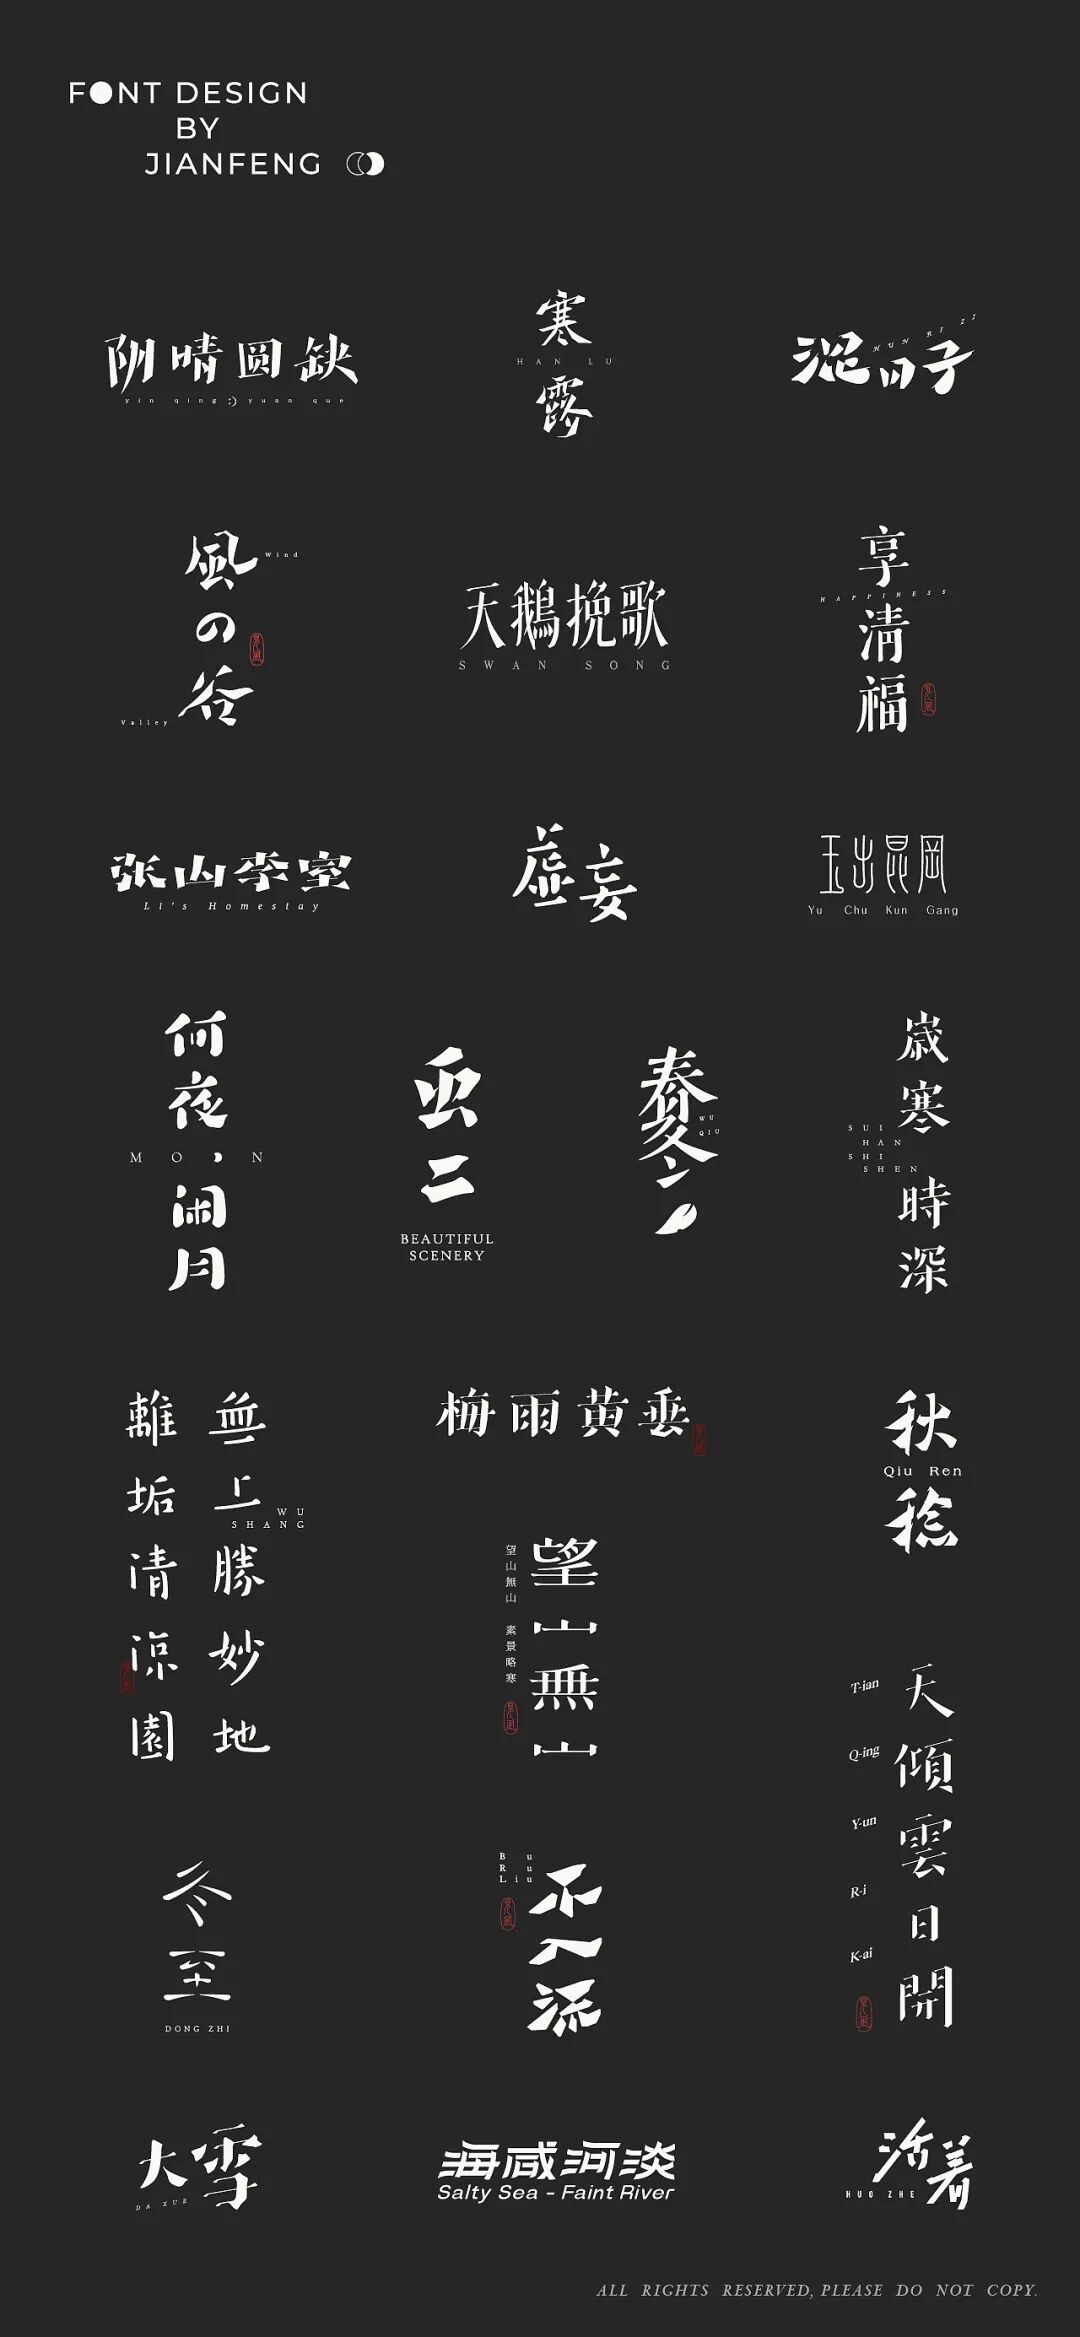 FONT DESIGN
BY
JIANFENG
阴晴圆缺
yin qing :) yuan que
寒
HAN LU
露
混日子
HUN RI ZI
風の谷
Wind
Valley
天鵝挽歌
SWAN SONG
享清福
HAPPINESS
张山李室
Li's Homestay
虚妄
玉出昆岡
Yu Chu Kun Gang
何夜
MOON
闲月
虫二
BEAUTIFUL
SCENERY
WU
QIU
歲寒時深
SUI
HAN
SHI
SHEN
無上勝妙地
離垢清涼園
WU
SHANG
梅雨黄垂
秋
Qiu Ren
稔
望山無山
望山無山 素景略寒
天傾雲日開
T-ian
Q-ing
Y-un
R-i
K-ai
冬至
DONG ZHI
不入流
B u
R u
L i u
大雪
DA XUE
海咸河淡
Salty Sea - Faint River
活着
HUO ZHE
ALL RIGHTS RESERVED, PLEASE DO NOT COPY.